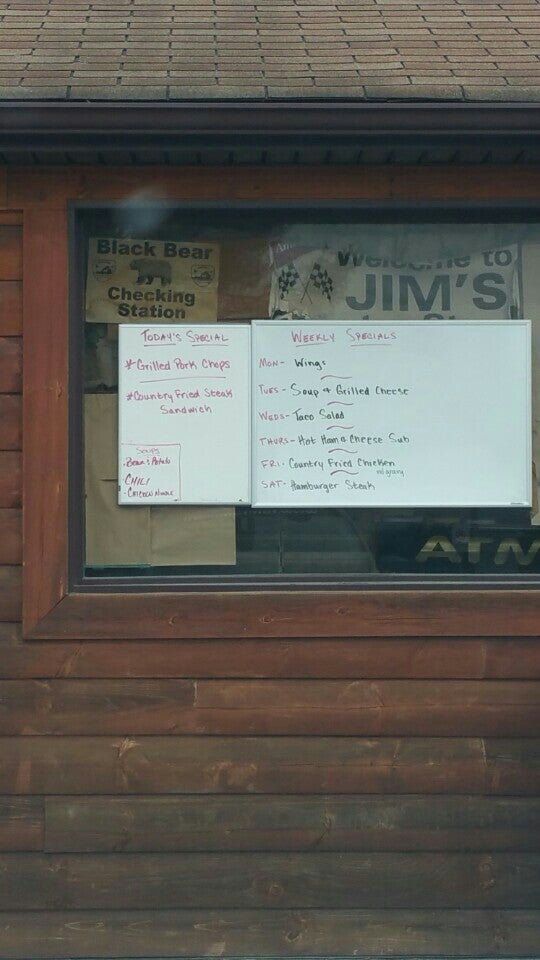 Black Bear
Checking
Station
Welcome to
JIM'S
TODAY'S SPECIAL
*Grilled Pork Chops
*Country Fried Steak
Sandwich
SOUPS
CHILI
CHICKEN NOODLE
WEEKLY SPECIALS
MON- Wings
TUES- Soup & Grilled Cheese
WEDS- Taco Salad
THURS- Hot Ham & Cheese Sub
FRI- Country Fried Chicken
w/gravy
SAT- Hamburger Steak
ATM